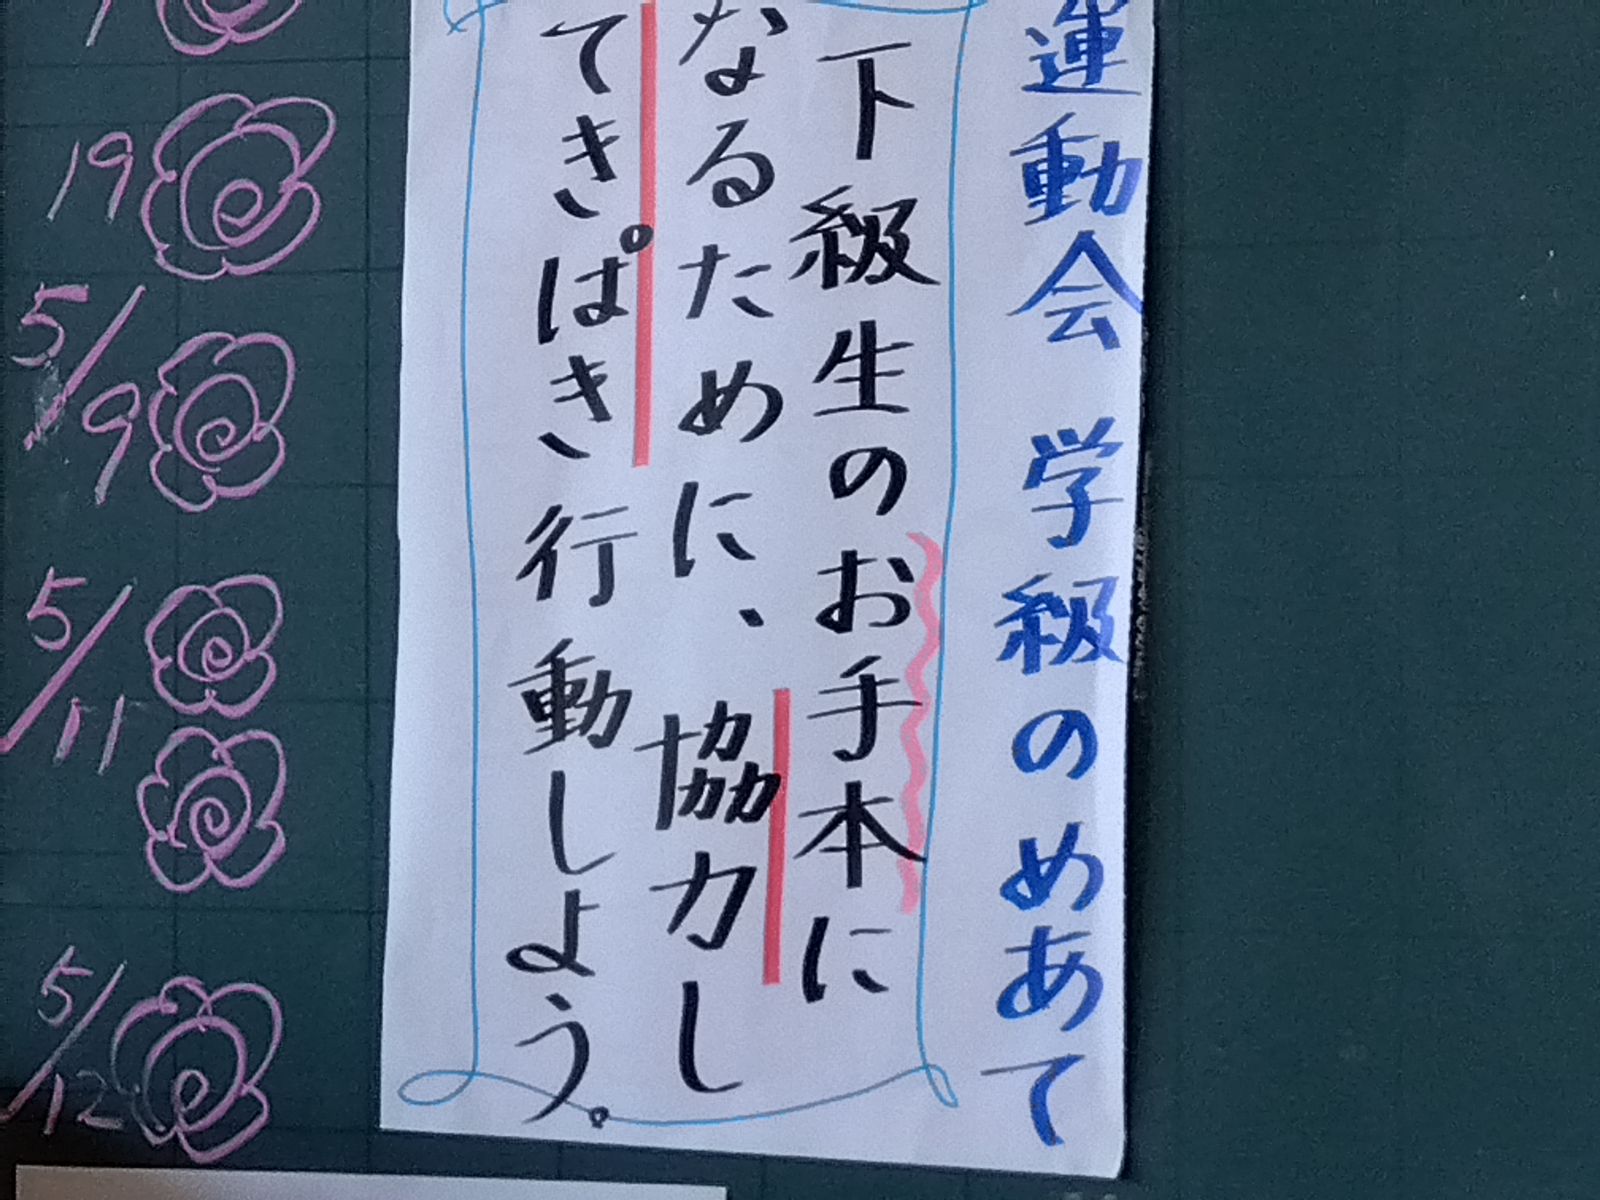 運動会 学級のめあて
下級生のお手本に
なるために、協力し
てきぱき行動しよう。
19
5/9
5/11
5/12